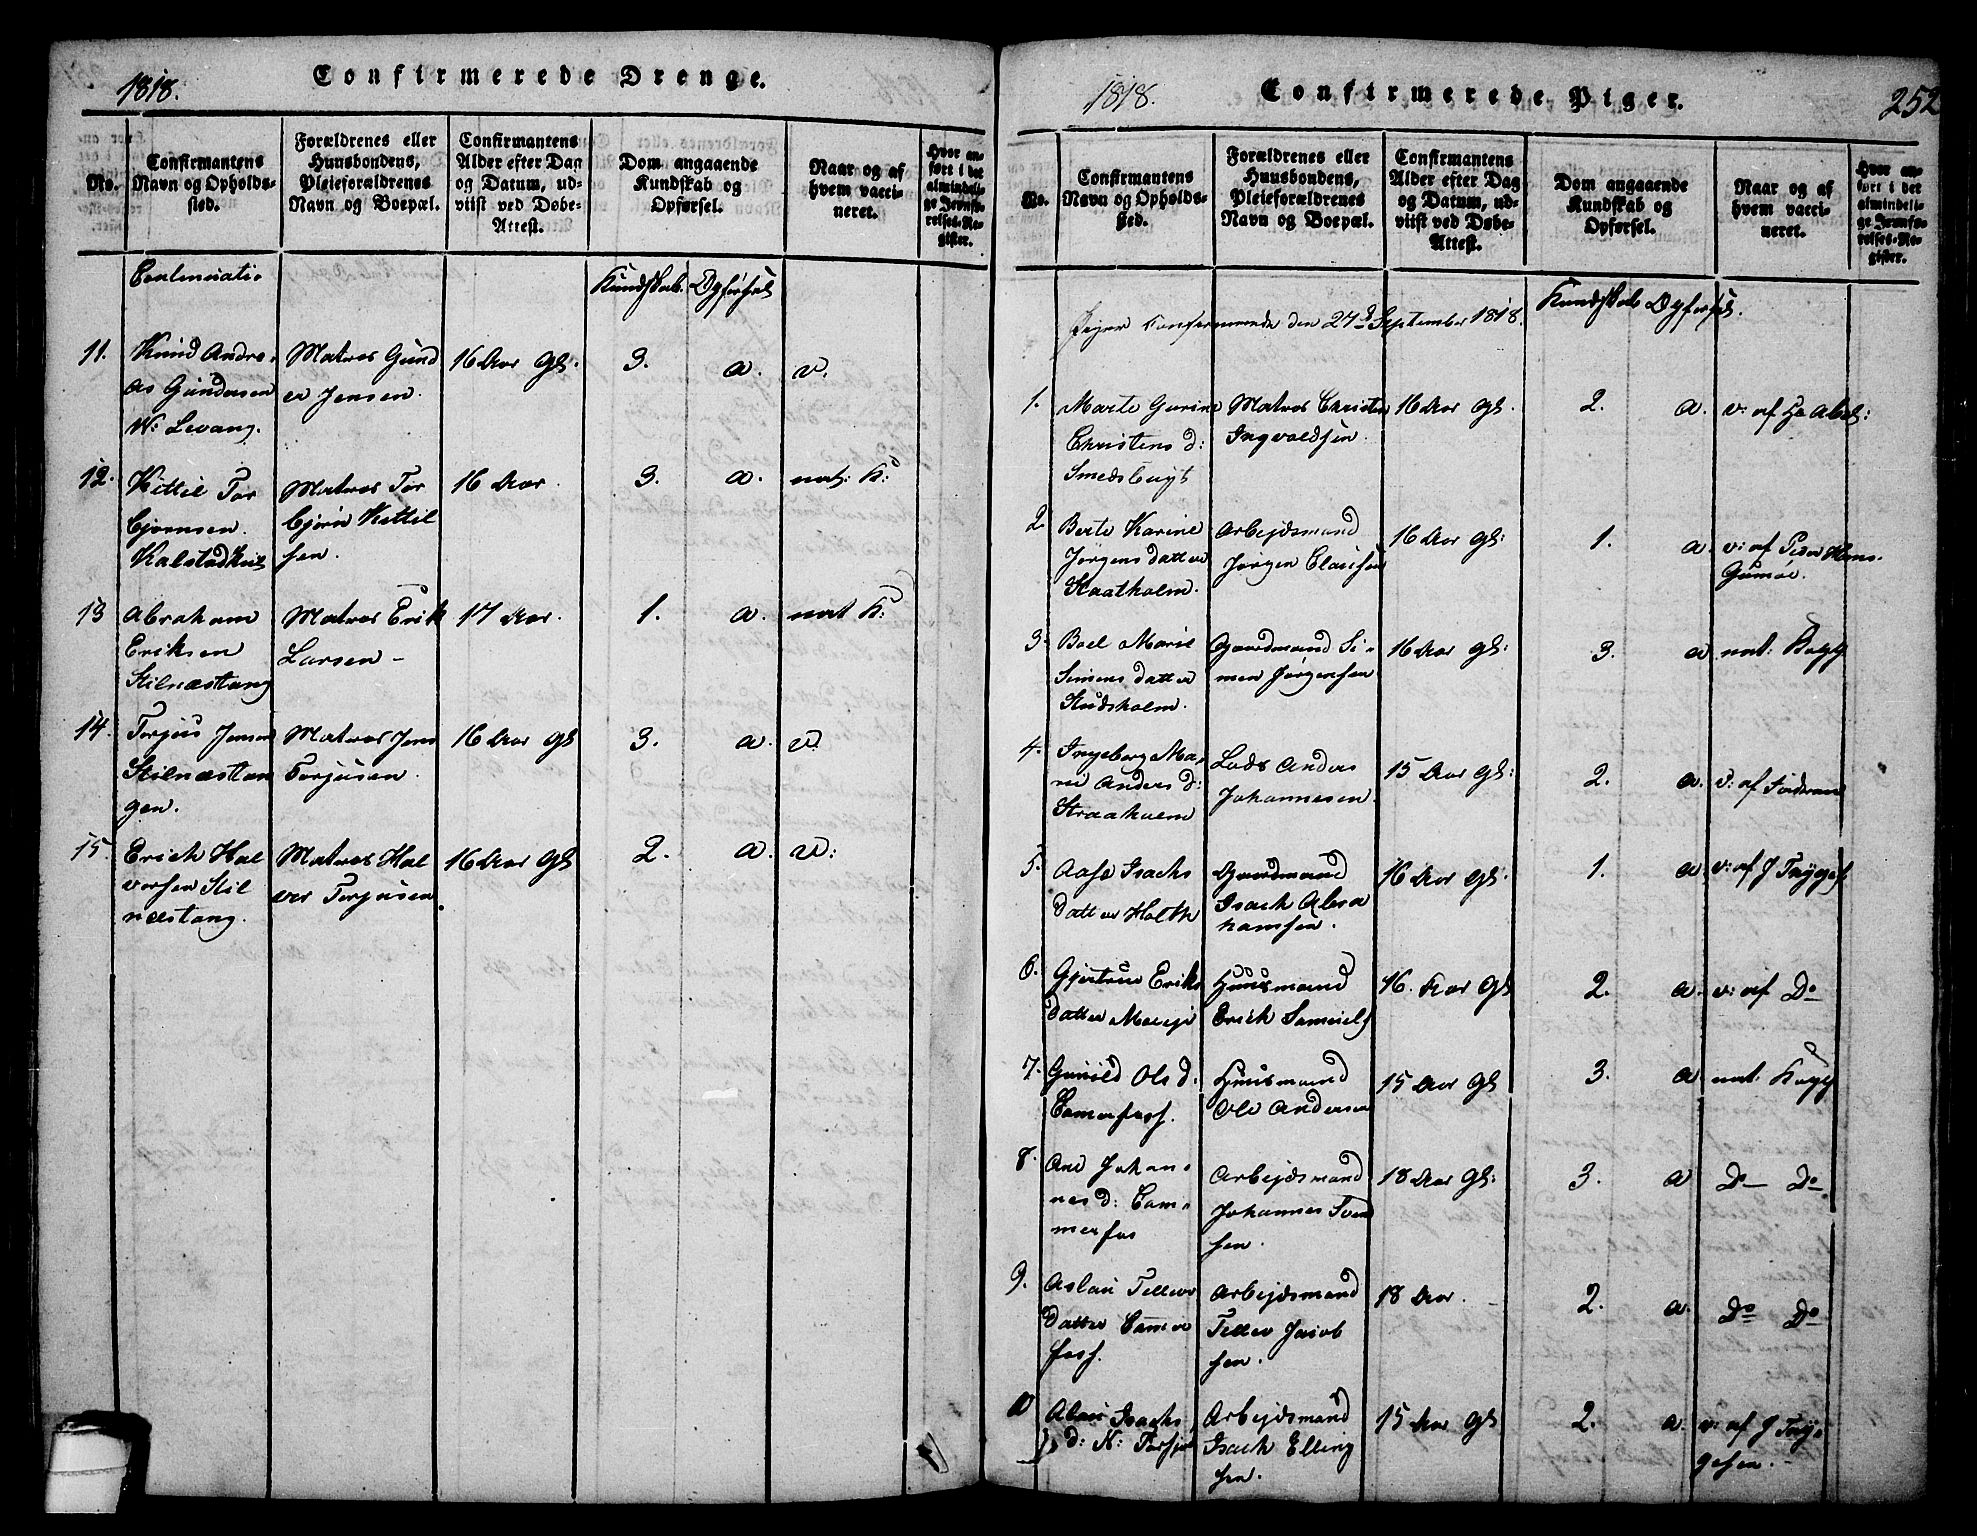 1818.
Confirmerede Drenge.
No.
Confirmantens
Navn og Opholds-
sted.
Forældrenes eller
Huusbondens,
Pleieforældrenes
Navn og Boepæl.
Confirmantens
Alder efter Dag
og Datum, ud-
viist ved Døbe-
Attest.
Dom angaaende
Kundskab og
Opførsel.
Naar og af
hvem vacci-
neret.
Hvor an-
ført i det
almindeli-
ge Jevnfø-
relses-Re-
gister.
Kundskab. Opførsel
11.
Knud Andre-
as Gundersen
N: Levang.
Matros Gund
er Jensen.
16 Aar Gl.
3.
a.
v.
12.
Kittil Tor
bjørnsen
Kalstadkiil
Matros Tor
bjørn Kittil
sen.
16 Aar.
3.
a.
nat: K:
13
Abraham
Eriksen
Stilnæstang
Matros Erik
Larsen -
17 Aar.
1.
a.
nat K:
14.
Torjus Jensen
Stilnæstan
gen.
Matros Jens
Torjusen.
16 Aar Gl
3.
a.
v.
15.
Erich Hal
vorsen Stil
næstang.
Matros Hal
vor Torjusen
16 Aar Gl
2.
a.
v:
1818.
Confirmerede Piger.
252
No.
Confirmantens
Navn og Opholds-
sted.
Forældrenes eller
Huusbondens,
Pleieforældrenes
Navn og Boepæl.
Confirmantens
Alder efter Dag
og Datum, ud-
viist ved Døbe-
Attest.
Dom angaaende
Kundskab og
Opførsel.
Naar og af
hvem vacci-
neret.
Hvor an-
ført i det
almindeli-
ge Jevnfø-
relses-Re-
gister.
Piger Confirmerede den 27d September 1818.
Kundskab Opførsel.
1.
Marte Gurine
Christens d:
Smedsbugt
Matros Christen
Ingvaldsen.
16 Aar Gl.
2.
a.
v: af Hr Abel:
2.
Berte Karine
Jørgensdatter
Skaatholm.
Arbejdsmand
Jørgen Clausen
16 Aar Gl:
1.
a.
v: af Peder Hans-
Gumøe.
3.
Boel Marie
Simensdatter
Skudsholm.
Gaardmand Si-
men Jørgensen
16 Aar Gl:
3.
a
nat: Kopp
4.
Ingeborg Ma-
rie Anders d:
Straaholm
Lods Anders
Johannesen.
15 Aar Gl:
2.
a.
v: af
5.
Aase Isachs
datter Holth
Gaardmand
Isach Abra
hamsen.
16 Aar Gl.
1.
a
v: af J Trÿgs
6.
Gjertrue Eriks
datter
Huusmand
Erich Samuels
16. Aar Gl
2.
a.
v: af Do
7.
Gunild Ols d:
Camerfoss.
Huusmand
Ole Andersen
15 Aar Gl
3.
a
nat. Kopp
8.
Ane Johan-
nes d: Cam-
merfos
Arbejdsmand
Johannes Svend
sen.
18 Aar Gl:
3.
a
Do Do
9.
Aslau Tellev
datter Camer
foss.
Arbejdsmand
Tellev Jacob
sen.
18 Aar.
2.
a.
Do Do
10
Isachs
d: N:
Arbejdsmand
Isach Elling
sen.
15 Aar Gl
2.
a.
v: af J Trÿ-
gesen.